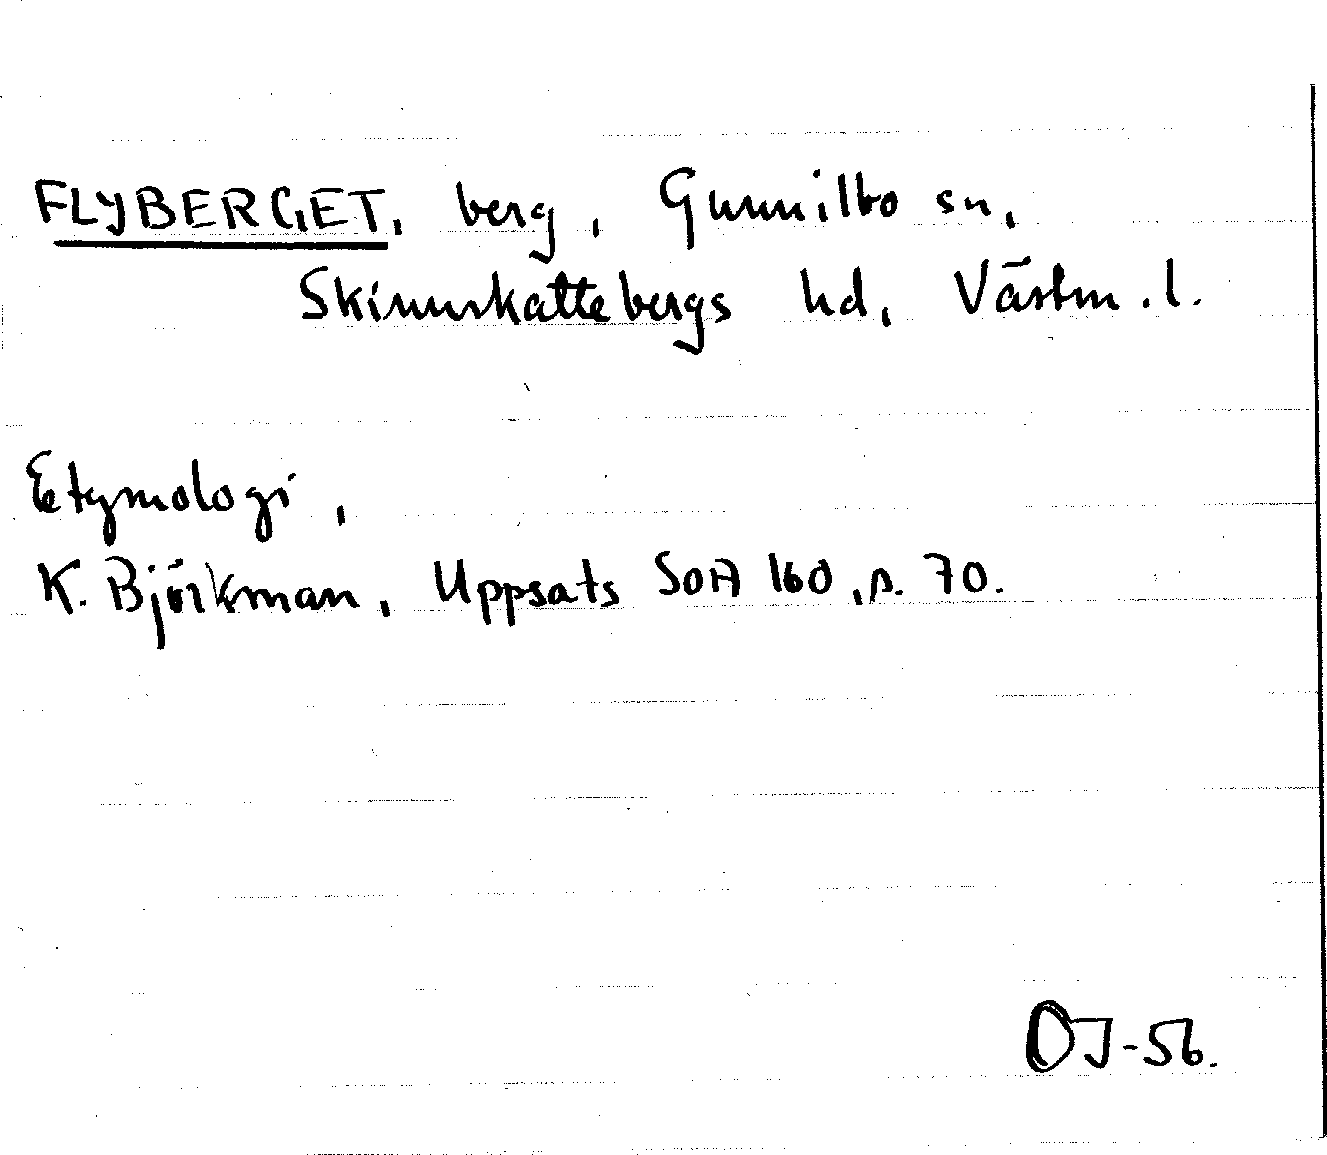 FLYBERGET, berg, Gunnilbo sn,
Skinnskattebergs hd, Västm.l.
Etymologi,
K. Björkman, Uppsats SOA 160, s. 70.
OJ-56.